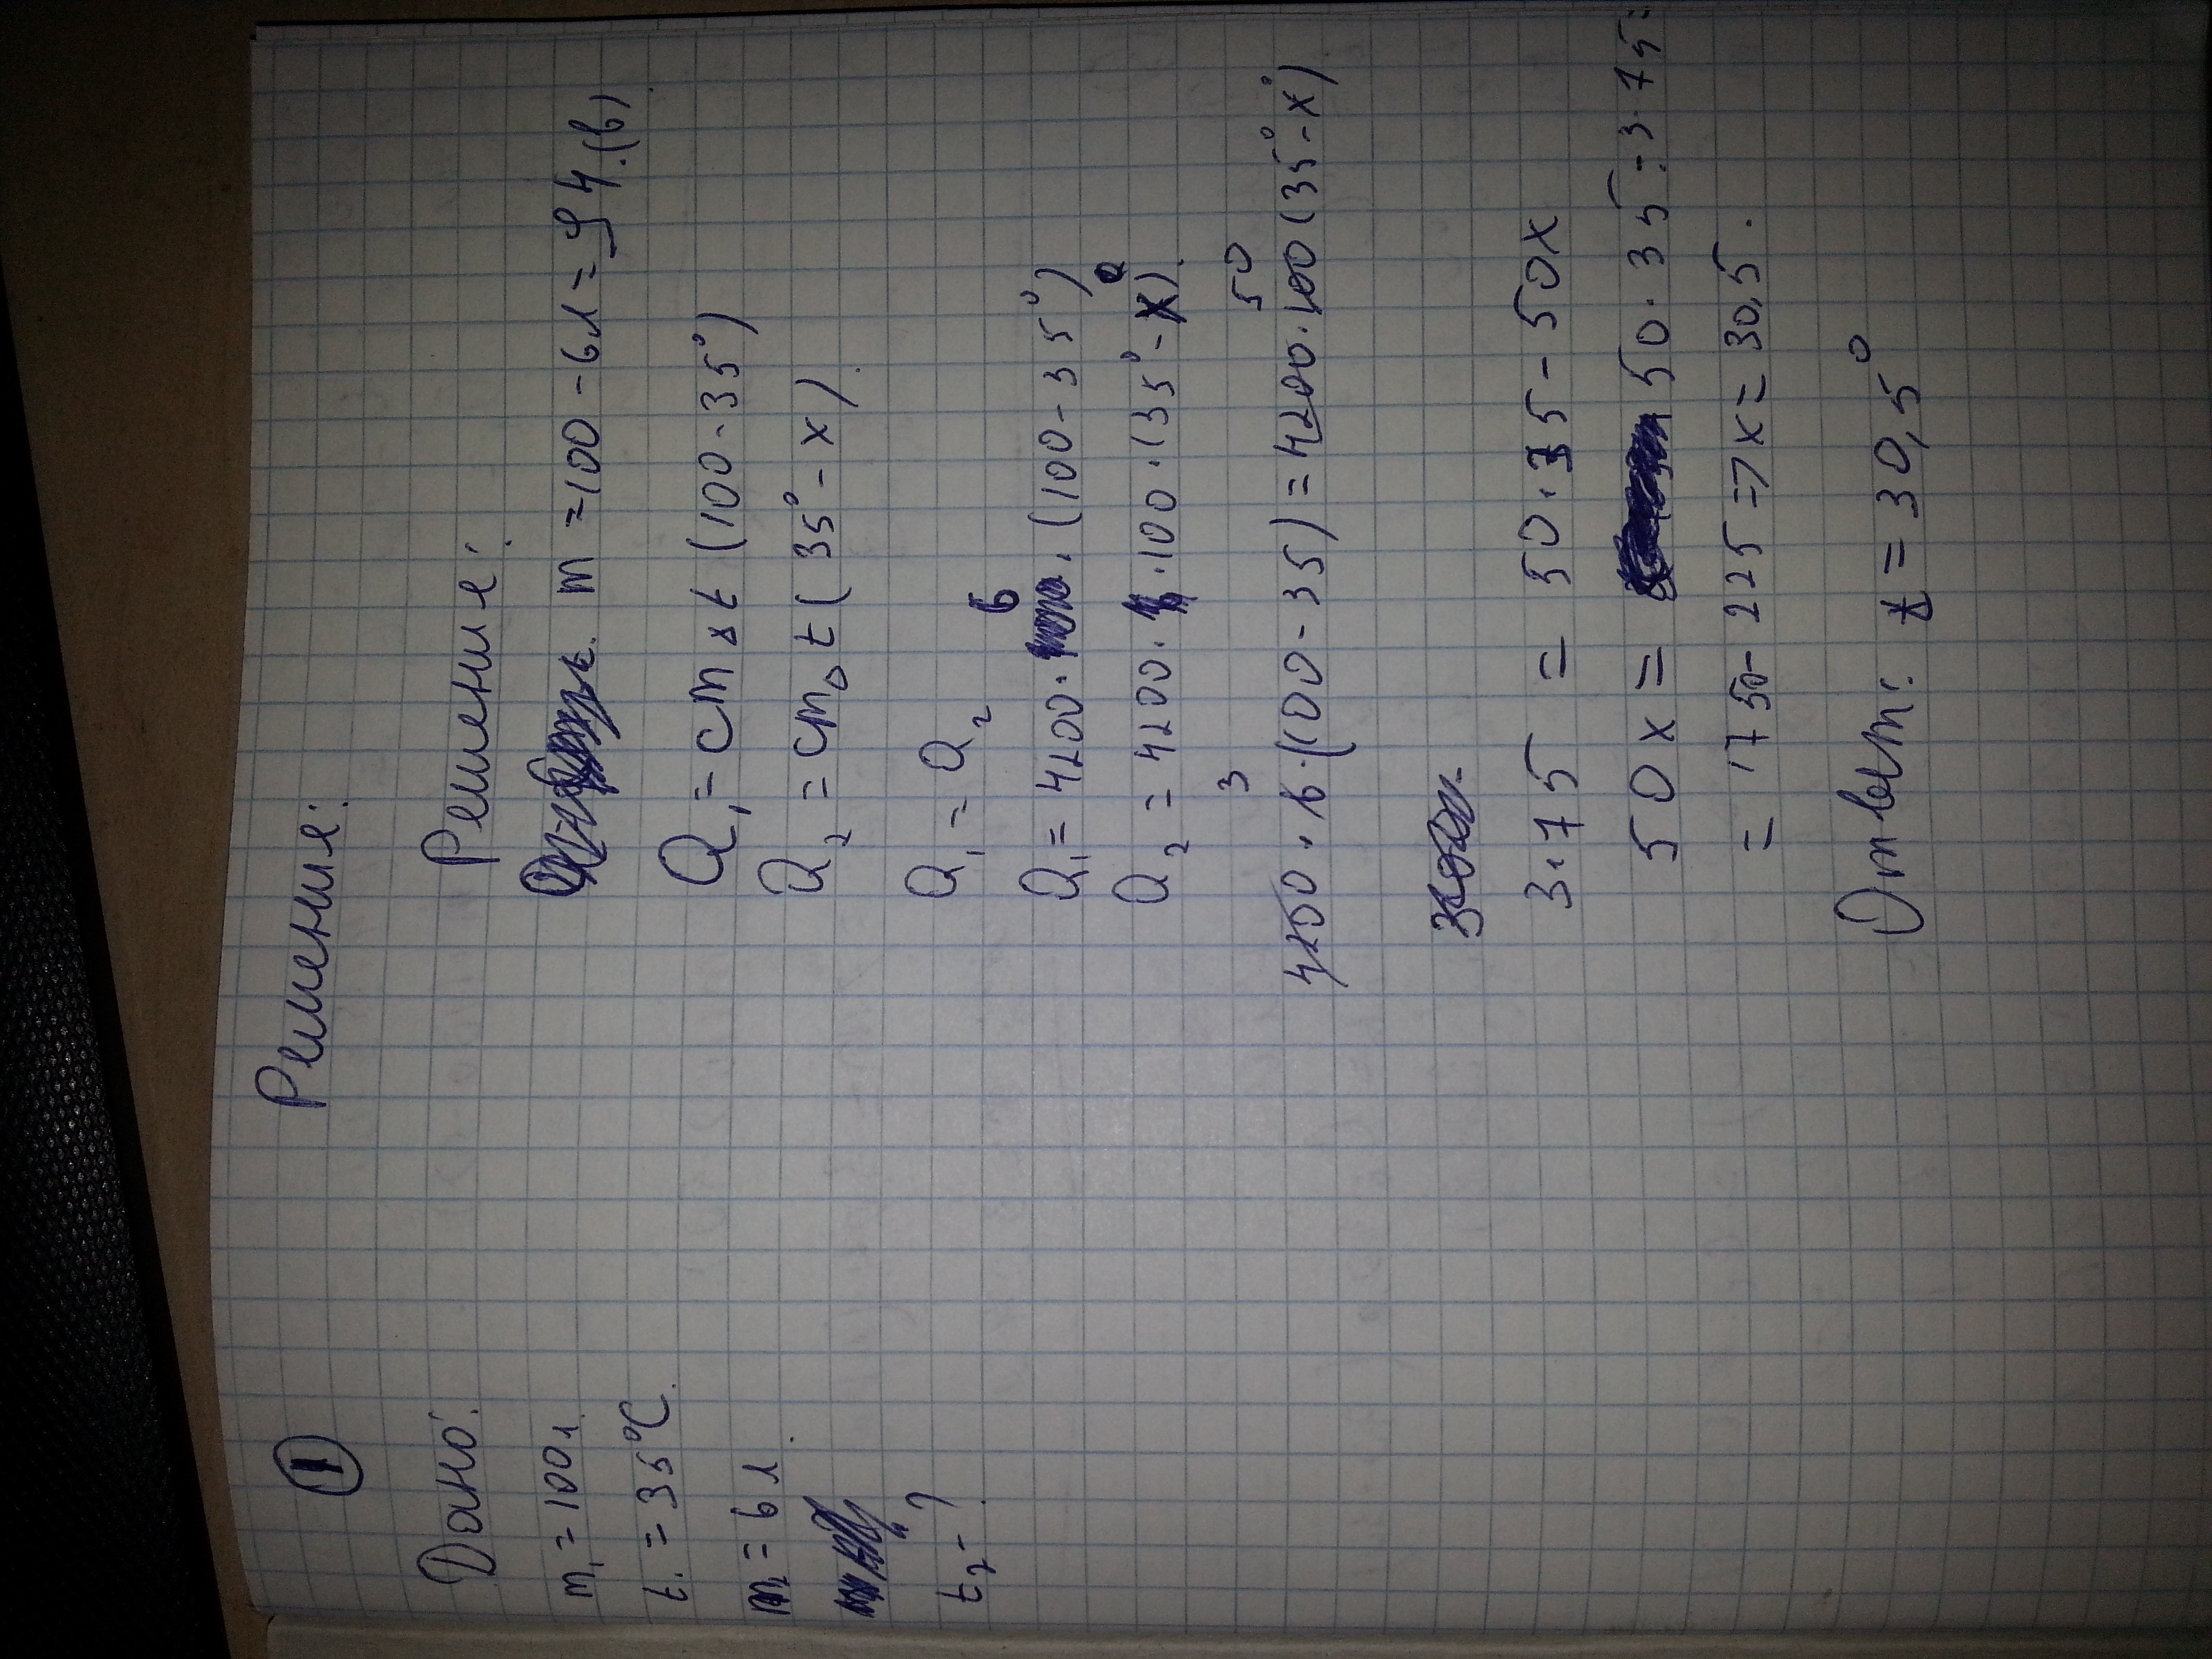 ①
Решение:
Дано:
m₁ = 100 л
t₁ = 35°C.
m₂ = 6 л
t₂ - ?
Решение:
m = 100 - 6л = 94.(в)
Q₁ = cm₂t (100 - 35°)
Q₂ = cm₀t (35° - x).
Q₁ = Q₂
Q₁ = 4200 · 6 · (100 - 35°)
Q₂ = 4200 · 100 · (35° - x°).
3 50
4200 · 6 · (100 - 35) = 4200 · 100 (35° - x°)
3 · 75 = 50 · 35 - 50x
50x = 50 · 35 - 3 · 75 =
= 1750 - 225 => x = 30,5.
Ответ: t = 30,5°